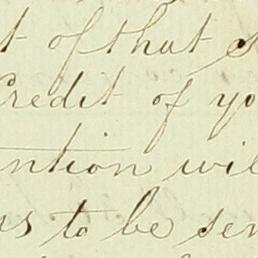 t of that s
Credit of yo
ntion wil
as to be sen